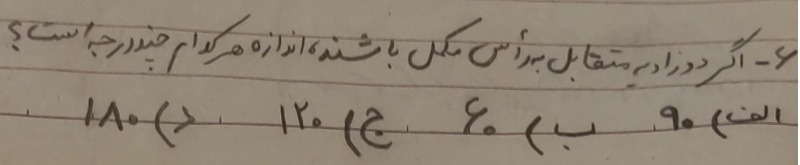 ۶- اگر دو زاویه متقابل به رأس مکمل باشند، اندازه هر کدام چند درجه است؟
الف) ۹۰ ب) ۶۰ ج) ۱۲۰ د) ۱۸۰